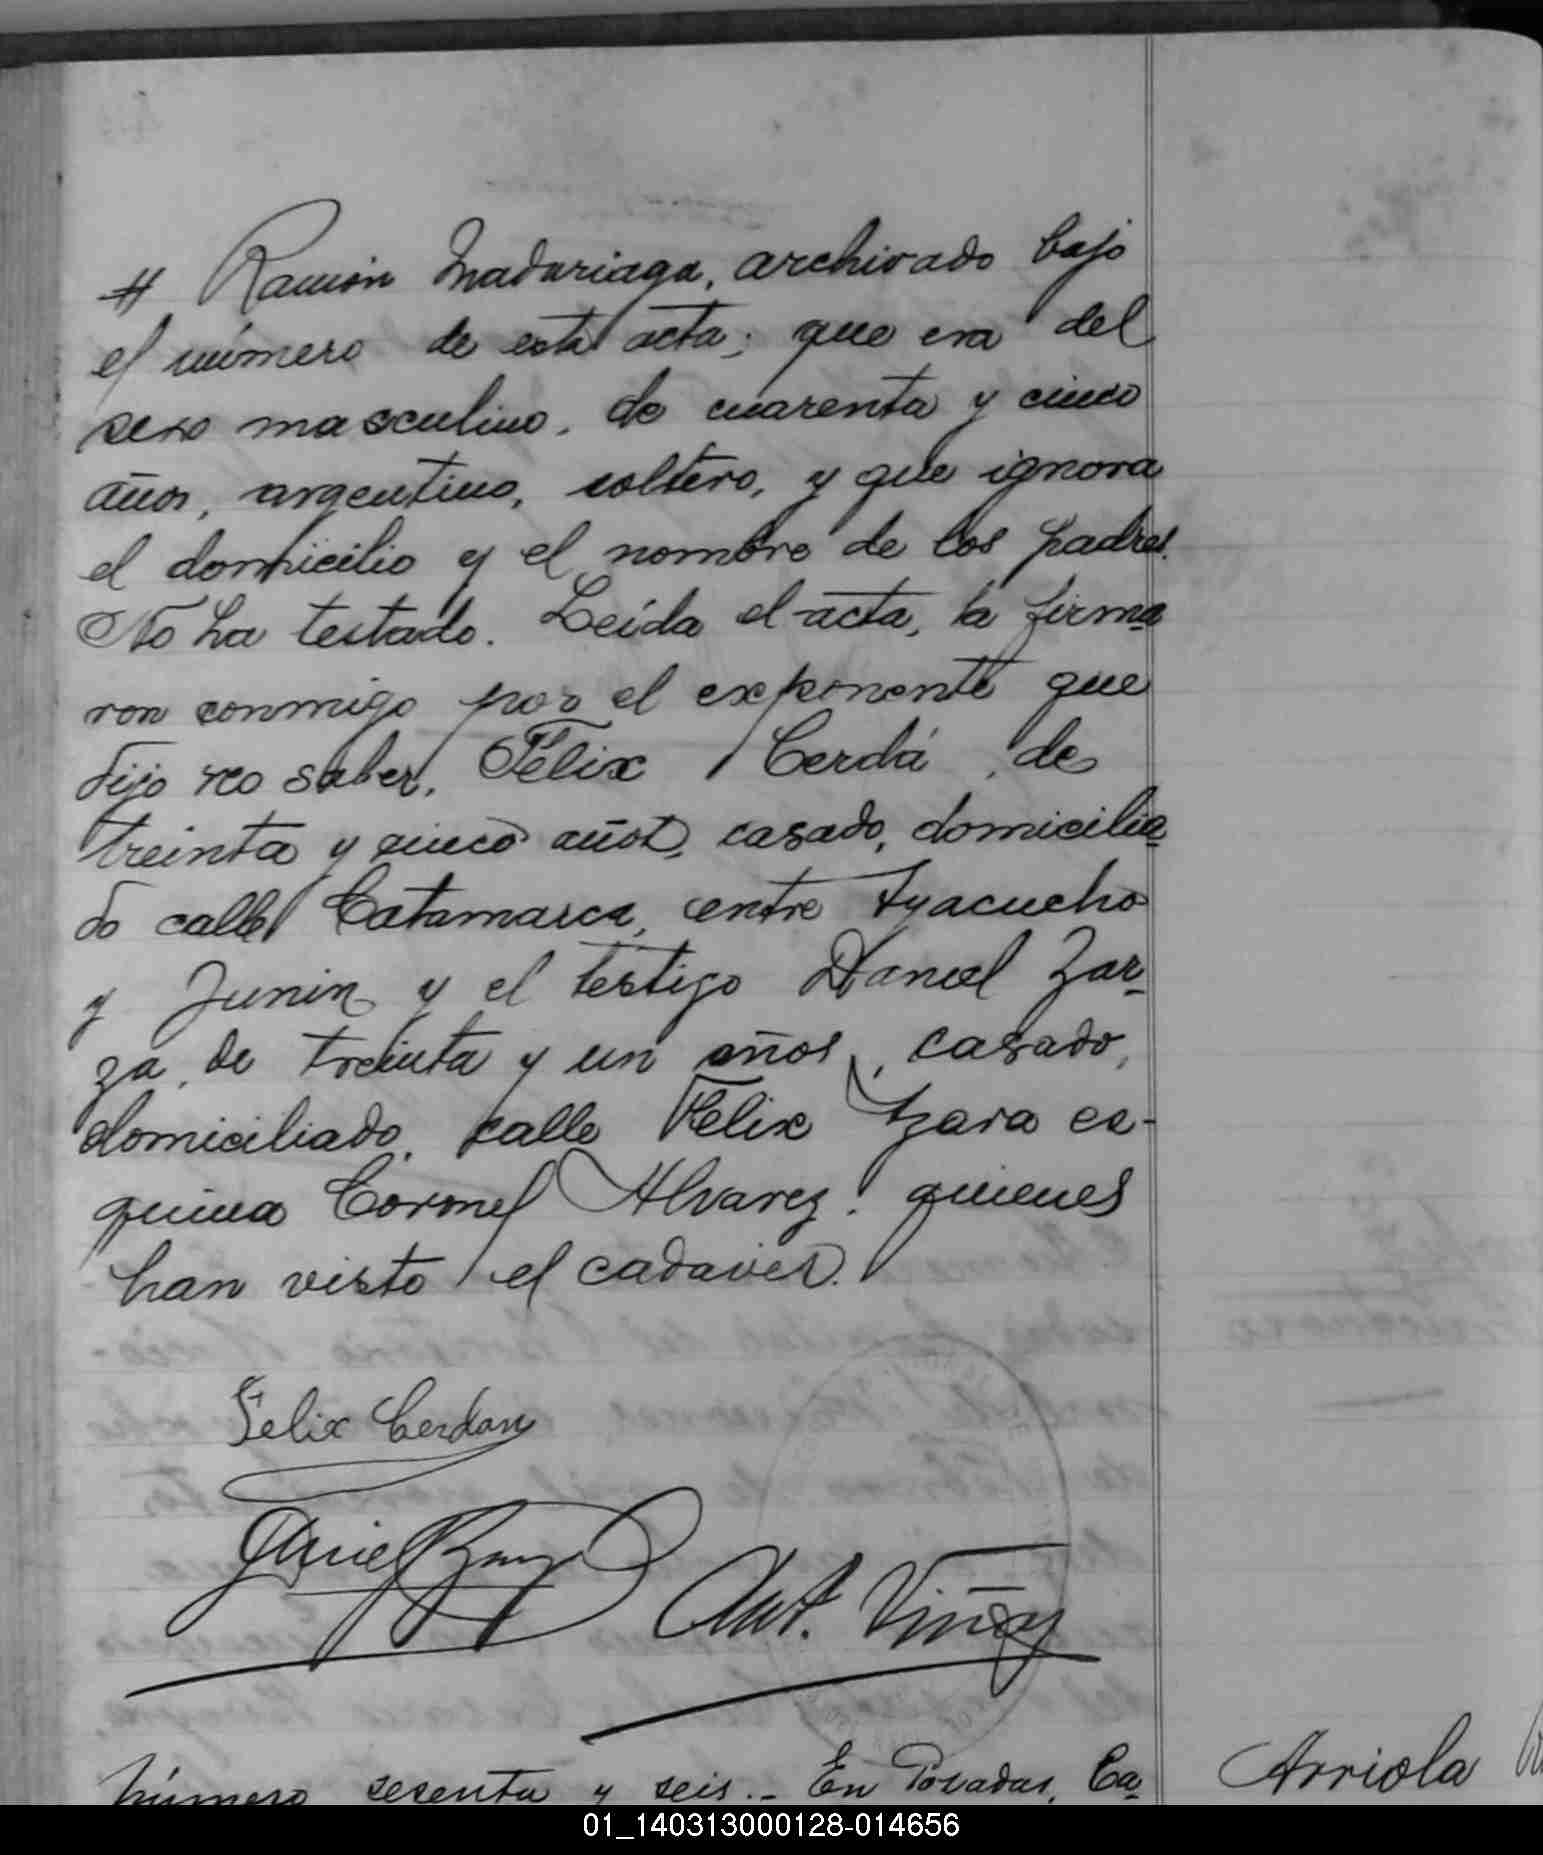 # Ramón Madariaga, archivado bajo
el número de esta acta; que era del
sexo masculino, de cuarenta y cinco
años, argentino, soltero, y que ignora
el domicilio y el nombre de los padres.
No ha testado. Leída el acta, la firma
ron conmigo por el exponente que
dijo no saber, Félix Cerdá, de
treinta y cinco años, casado, domicilia
do calle Catamarca, entre Ayacucho
y Junin y el testigo Daniel Zar-
za, de treinta y un años, casado,
domiciliado, calle Félix Azara es-
quina Coronel Alvarez: quienes
han visto el cadaver.
Felix Cerdan
Ant. Viñas
Número sesenta y seis.- En Posadas, Ca
Arriola
01_140313000128-014656